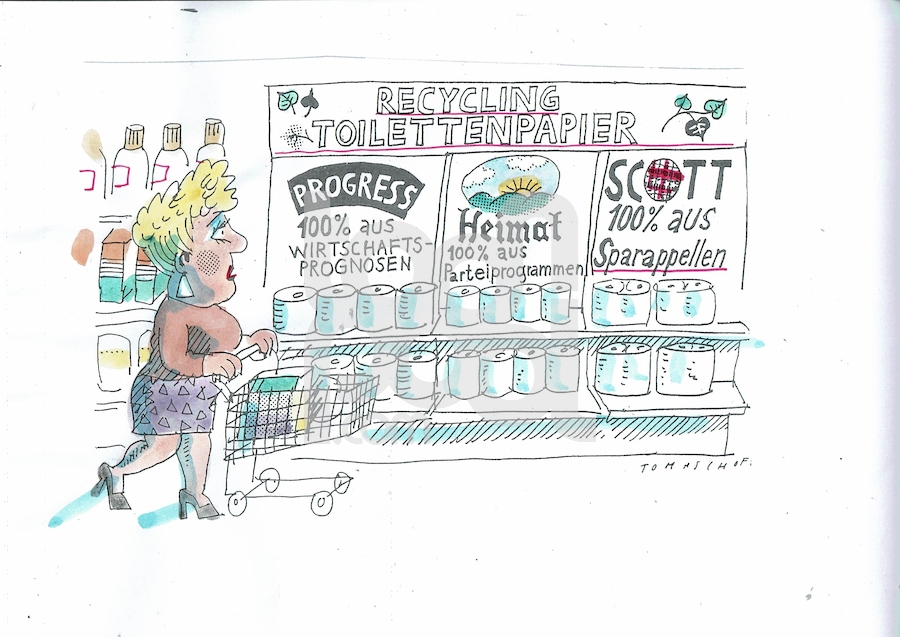 RECYCLING
TOILETTENPAPIER
PROGRESS
100% AUS
WIRTSCHAFTS-
PROGNOSEN
Heimat
100% aus
Parteiprogrammen
SCOTT
100% aus
Sparappellen
TOMASCHOFF